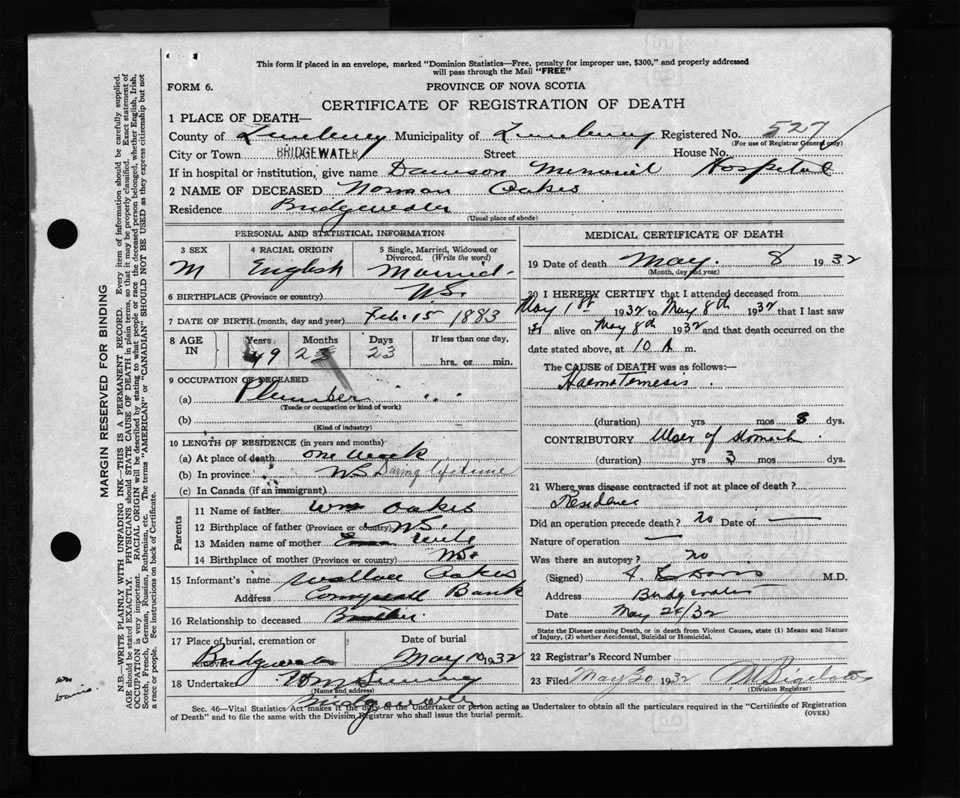 This form if placed in an envelope, marked "Dominion Statistics—Free, penalty for improper use, $300," and properly addressed
will pass through the Mail "FREE"
FORM 6.
PROVINCE OF NOVA SCOTIA
CERTIFICATE OF REGISTRATION OF DEATH
1 PLACE OF DEATH—
County of Lunenburg Municipality of Lunenburg Registered No. 527
(For use of Registrar General only)
City or Town BRIDGEWATER Street House No.
If in hospital or institution, give name Dawson Memorial Hospital
2 NAME OF DECEASED Norman Oakes
Residence Bridgewater
(Usual place of abode)
PERSONAL AND STATISTICAL INFORMATION
3 SEX 4 RACIAL ORIGIN 5 Single, Married, Widowed or Divorced. (Write the word)
M English Married.
6 BIRTHPLACE (Province or country) N.S.
7 DATE OF BIRTH (month, day and year) Feb. 15 1883
8 AGE IN Years Months Days If less than one day,
49 2 23 hrs. or min.
9 OCCUPATION OF DECEASED
(a) Plumber
(Trade or occupation or kind of work)
(b)
(Kind of industry)
10 LENGTH OF RESIDENCE (in years and months)
(a) At place of death one week
(b) In province N.S. During lifetime
(c) In Canada (if an immigrant)
Parents
11 Name of father Wm Oakes
12 Birthplace of father (Province or country) N.S.
13 Maiden name of mother
14 Birthplace of mother (Province or country) N.S.
15 Informant's name Wallace Oakes
Address Bank
16 Relationship to deceased Brother
17 Place of burial, cremation or Date of burial
Bridgewater May 10 1932
18 Undertaker
(Name and address)
Bridgewater
MEDICAL CERTIFICATE OF DEATH
19 Date of death May 8 1932
(Month, day and year)
20 I HEREBY CERTIFY that I attended deceased from
May 1st 1932 to May 8th 1932 that I last saw
h alive on May 8th 1932 and that death occurred on the
date stated above, at 10 A m.
The CAUSE of DEATH was as follows:—
Haematemesis
(duration) yrs mos 8 dys.
CONTRIBUTORY Ulcer of Stomach
(duration) yrs 3 mos dys.
21 Where was disease contracted if not at place of death?
Residence
Did an operation precede death? no Date of —
Nature of operation —
Was there an autopsy? no
(Signed) Davis M.D.
Address Bridgewater
Date May 28/32
State the Disease causing Death, or in death from Violent Causes, state (1) Means and Nature
of Injury, (2) whether Accidental, Suicidal or Homicidal.
22 Registrar's Record Number
23 Filed May 30 1932
(Division Registrar)
Sec. 46—Vital Statistics Act makes it the duty of the Undertaker or person acting as Undertaker to obtain all the particulars required in the "Certificate of Registration
of Death" and to file the same with the Division Registrar who shall issue the burial permit. (OVER)
MARGIN RESERVED FOR BINDING
N.B.—WRITE PLAINLY WITH UNFADING INK—THIS IS A PERMANENT RECORD. Every item of information should be carefully supplied.
AGE should be stated EXACTLY. PHYSICIANS should STATE CAUSE OF DEATH in plain terms, so that it may be properly classified. Exact statement of
OCCUPATION is very important. RACIAL ORIGIN will be described by stating to what people or race the deceased person belonged, whether English, Irish,
Scotch, French, German, Russian, Ruthenian, etc. The terms "AMERICAN" or "CANADIAN" SHOULD NOT BE USED as they express citizenship but not
a race or people. See instructions on back of Certificate.